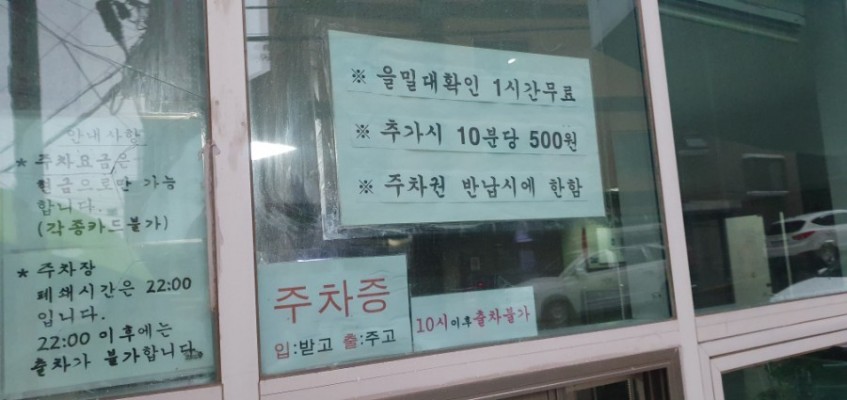 안내사항
* 주차요금은
현금으로만 가능
합니다.
(각종카드불가)
* 주차장
폐쇄시간은 22:00
입니다.
22:00 이후에는
출차가 불가합니다.
※ 을밀대확인 1시간무료
※ 추가시 10분당 500원
※ 주차권 반납시에 한함
주차증
입:받고 출:주고
10시이후출차불가